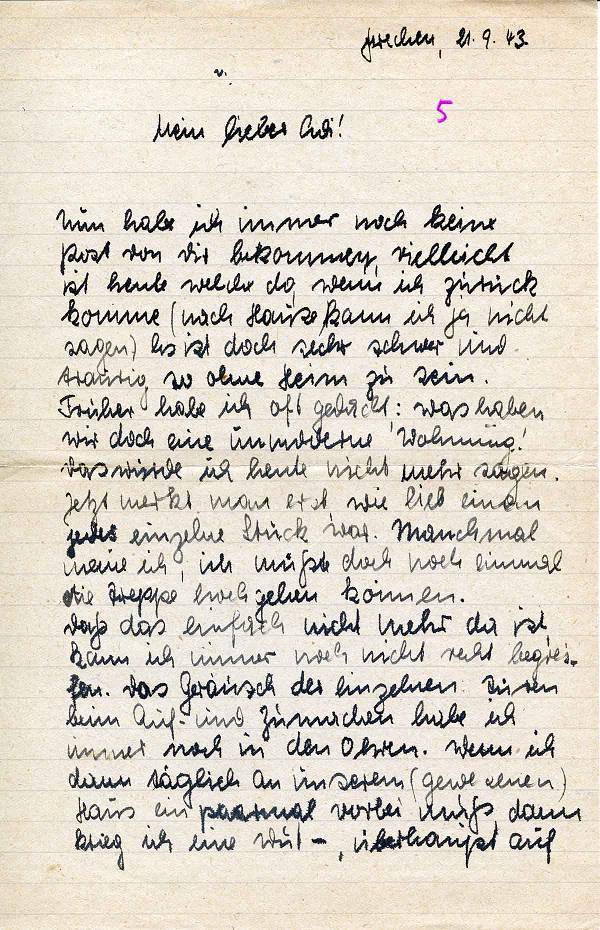 Frechen, 21.9.43.
5
Mein lieber Adi!
Nun habe ich immer noch keine
Post von dir bekommen, vielleicht
ist heute welche da, wenn ich zurück
komme (nach Hause kann ich ja nicht
sagen) Es ist doch sehr schwer und
traurig, so ohne Heim zu sein.
Früher habe ich oft gedacht: was haben
wir doch eine unmoderne Wohnung!
Das würde ich heute nicht mehr sagen.
Jetzt merkt man erst, wie lieb einem
jedes einzelne Stück war. Manchmal
meine ich, ich müßte doch noch einmal
die Treppe hoch gehen können.
Daß das einfach nicht mehr da ist
kann ich immer noch nicht recht begrei-
fen. Das Geräusch der einzelnen Türen
beim Auf- und Zumachen habe ich
immer noch in den Ohren. Wenn ich
dann täglich an unserem (gewesenen)
Haus ein paarmal vorbei muß, dann
krieg ich eine Wut –, überhaupt auf